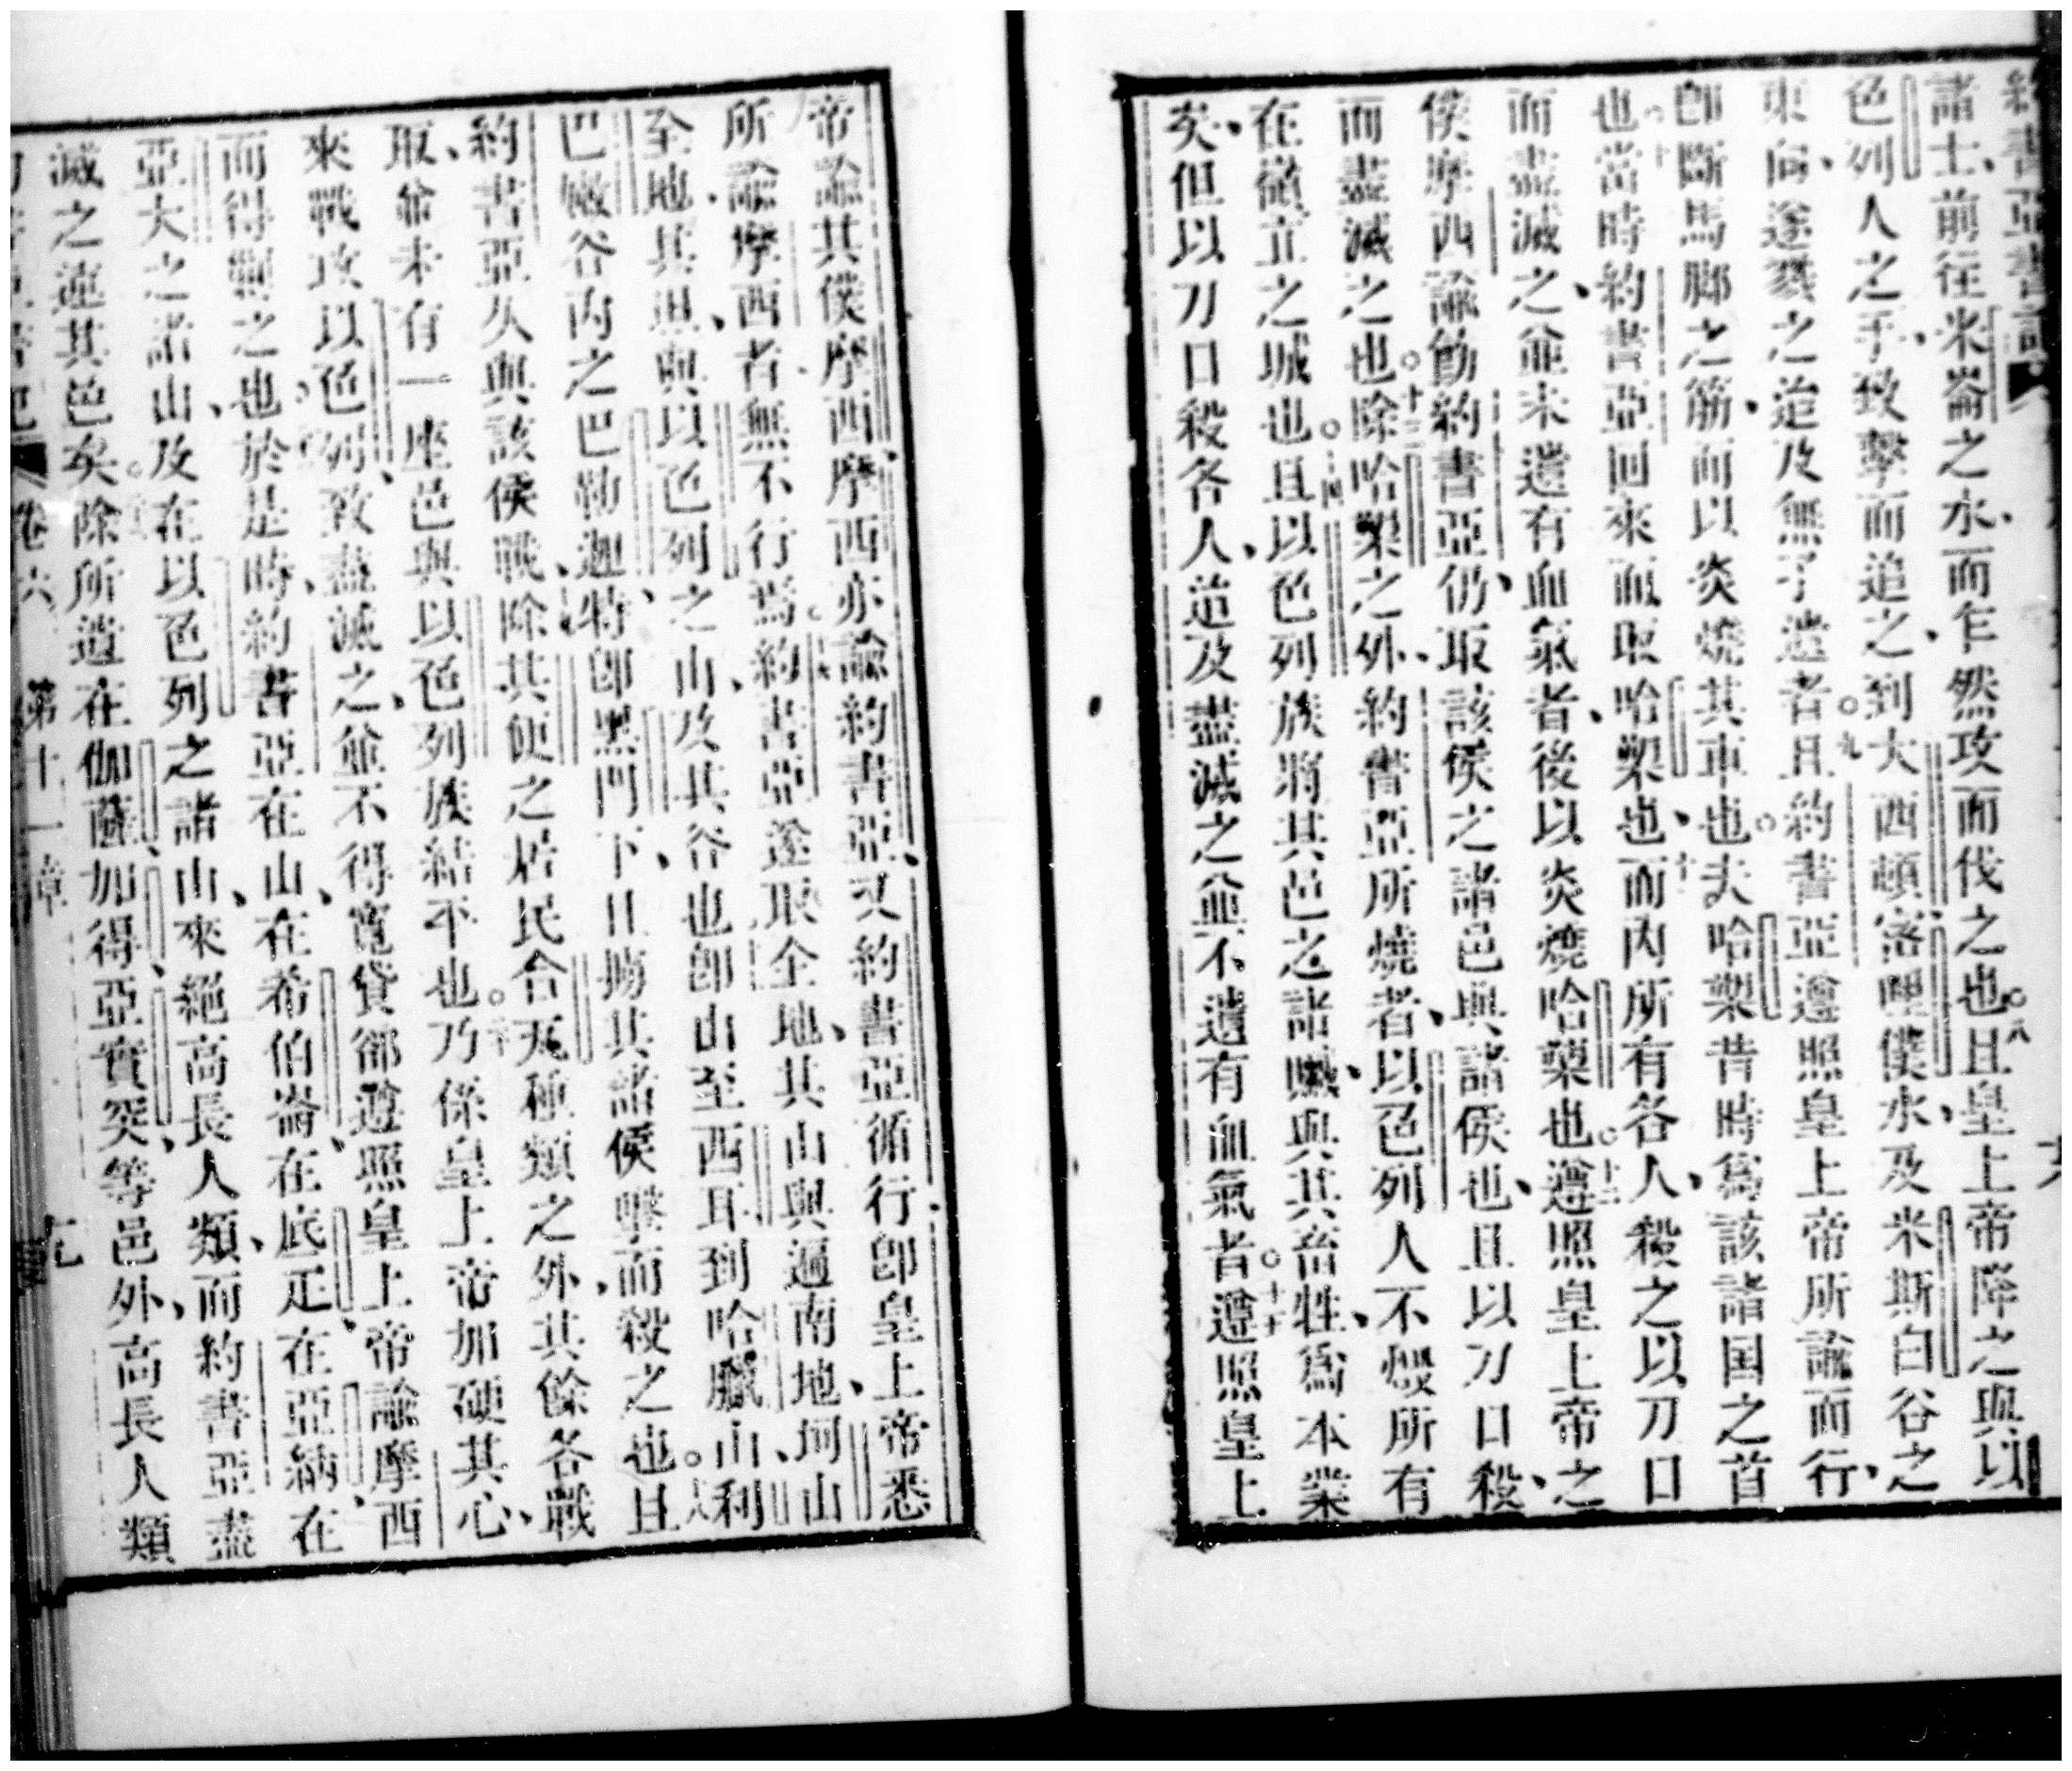 約書亞書記
諸士、前往米崙之水、而乍然攻而伐之也。八且皇上帝降之與以
色列人之手、致擊而追之、到大西頓、密哩僕水、及米斯白谷之
東向、遂戮之、迨及無孑遺者。九且約書亞遵照皇上帝所諭而行、
卽斷馬脚之筋、而以炎燒其車也。夫哈槊昔時爲該諸国之首
也。十當時約書亞回來而取哈槊也、十一而內所有各人、殺之以刀口
而盡滅之、並未遺有血氣者、後以炎燒哈槊也。十二遵照皇上帝之
僕摩西諭飭、約書亞仍取該侯之諸邑與諸侯也、且以刀口殺、
而盡滅之也。十三除哈槊之外、約書亞所燒者、以色列人不燬所有
在嶺立之城也。十四且以色列族將其邑之諸贓、與其畜牲、爲本業
矣、但以刀口殺各人、迨及盡滅之、並不遺有血氣者。十五遵照皇上
帝諭其僕摩西、摩西亦諭約書亞、又約書亞循行、卽皇上帝悉
所諭摩西者、無不行焉。十六約書亞遂取全地、其山與遍南地、坷山
至地、其坦、與以色列之山、及其谷也、卽由至西耳到哈臘山、利
巴嫩谷內之巴勒迦特、卽黑門下、且擄其諸侯、擊而殺之也。十八且
約書亞久與該侯戰、十九除其便之居民合天種類之外、其餘各戰
取、並未有一座邑與以色列族結平也。二十乃係皇上帝加硬其心、
來戰攻以色列、致盡滅之、並不得寬貸、卻遵照皇上帝諭摩西
而得剿之也。於是時、約書亞在山、在希伯崙、在底疋、在亞納、在
亞大之諸山、及在以色列之諸山、來絕高長人類、而約書亞盡
滅之連其邑矣。除所遺在伽薩、加得、亞實突、等邑外、高長人類
卷六 第十一章